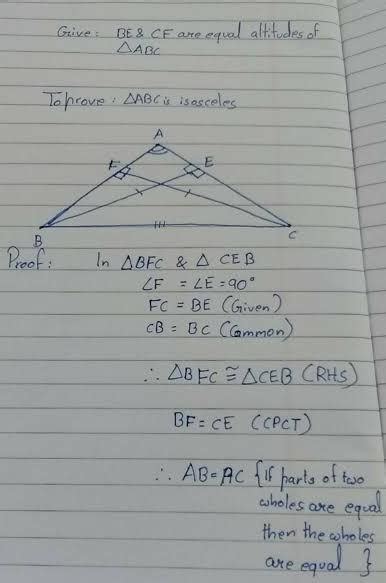 Give: BE & CF are equal altitudes of
△ABC
To prove: △ABC is isosceles
A
F
E
B
C
Proof: In △BFC & △ CEB
∠F = ∠E = 90°
FC = BE (Given)
CB = BC (Common)
∴ △BFC ≅ △CEB (RHS)
BF = CE (CPCT)
∴ AB = AC {if parts of two
wholes are equal
then the wholes
are equal }